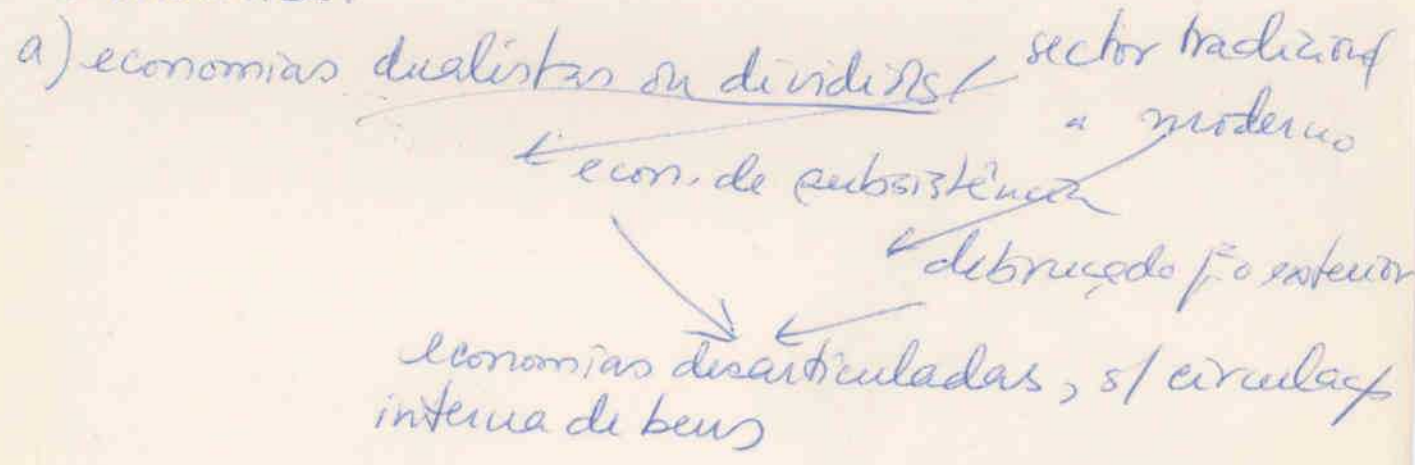 a) economias dualistas ou dividids / sector tradicional
" moderno
econ. de subsistência
debruçado p.ª o exterior
economias desarticuladas, s/ circulaç
interna de bens